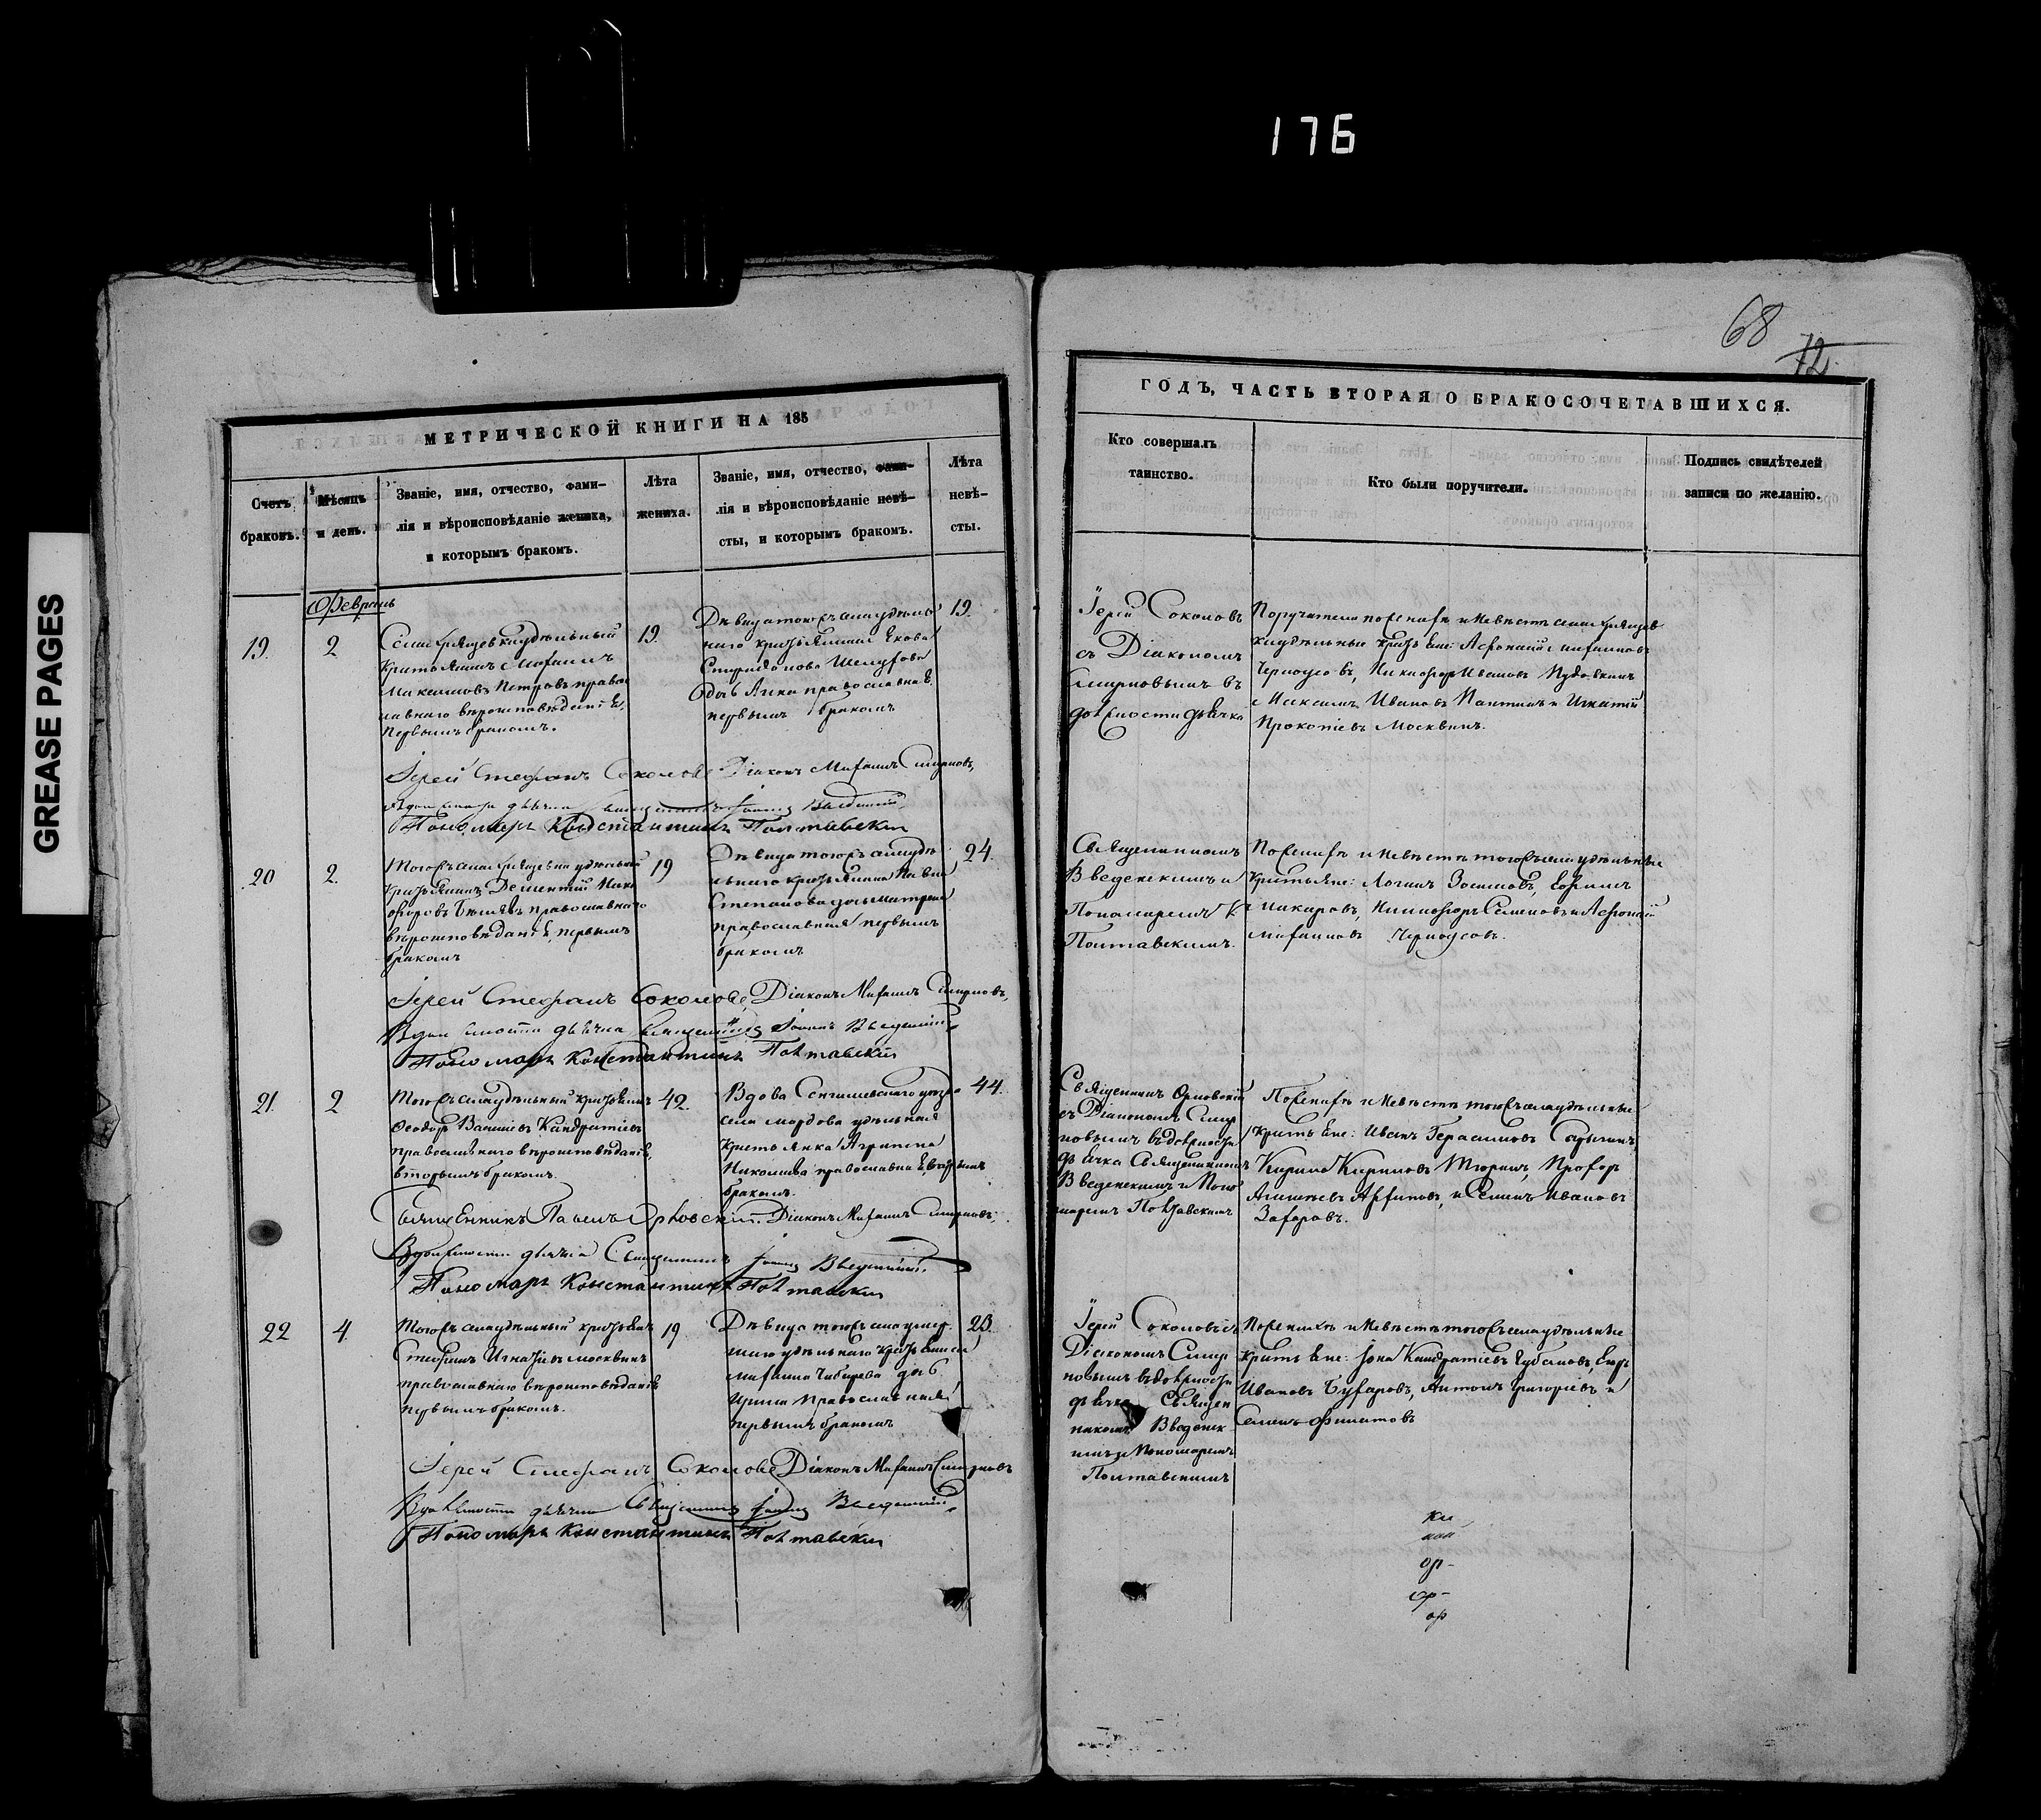 176
GREASE PAGES
68
72.
МЕТРИЧЕСКОЙ КНИГИ НА 185
Счетъ браковъ.
Мѣсяцъ и день.
Званіе, имя, отчество, фами-
лія и вѣроисповѣданіе жениха,
и которымъ бракомъ.
Лѣта
жениха.
Званіе, имя, отчество, фами-
лія и вѣроисповѣданіе невѣ-
сты, и которымъ бракомъ.
Лѣта
невѣ-
сты.
Февраль
19.
2
крестьянинъ Михаилъ
Максимовъ Петровъ право
славнаго вероисповеданія,
первымъ бракомъ.
19.
Девица тогоже села удель
наго крестьянина Якова
Спиридонова
дочь Анна православная
первымъ бракомъ
19.
Іерей Стефанъ Соколовъ Діаконъ Михаилъ Смирновъ,
В должности дьячка Священникъ Іоаннъ Введенскій
Пономарь Константинъ Полтавскій
20
2.
крестьянинъ Дементій Ники
форовъ православнаго
вероисповеданія, первымъ
бракомъ
19
Девица тогоже села уде
льнаго крестьянина Павла
Степанова дочь Матрона
православная первымъ
бракомъ
24.
Іерей Стефанъ Соколовъ, Діаконъ Михаилъ Смирновъ,
В должности дьячка Священникъ Іоаннъ Введенскій
Пономарь Константинъ Полтавскій
21.
2
Тогоже села удельный крестьянинъ
Феодоръ Кандратіевъ
православнаго вероисповеданія,
вторымъ бракомъ.
42.
Вдова Сенгилевскаго уезда
села Мордова удельная
крестьянка Агрипена
Николаева православная, вторымъ
бракомъ.
44.
Священникъ Павелъ Орловскій. Діаконъ Михаилъ Смирновъ,
В должности дьячка Священникъ Іоаннъ Введенскій
Пономарь Константинъ Полтавскій
22
4.
Тогоже села удельный крестьянинъ
Стефанъ Игнатіевъ Москвинъ
православнаго вероисповеданія
первымъ бракомъ.
19.
Девица тогоже села умер
шаго удельнаго крестьянина
Михаила Чибирева дочь
Ирина православная
первымъ бракомъ
23.
Іерей Стефанъ Соколовъ Діаконъ Михаилъ Смирновъ
В должности дьячка Священникъ Іоаннъ Введенскій
Пономарь Константинъ Полтавскій
ГОДЪ, ЧАСТЬ ВТОРАЯ О БРАКОСОЧЕТАВШИХСЯ.
Кто совершалъ
таинство.
Кто были поручители.
Подпись свидѣтелей
записи по желанію.
Іерей Соколовъ
съ Діакономъ
Смирновымъ въ
должности дьячка
Поручители по женихе и невесте села
удельные крестьяне: Афонасій Михаиловъ
Черноусовъ, Никифоръ Ивановъ Пудовкинъ
Максимъ Ивановъ Пантинъ и Игнатій
Прокопіевъ Москвинъ.
Священникомъ
Введенскимъ и
Пономаремъ К.
Полтавскимъ.
По женихе и невесте тогоже села удельные
крестьяне: Логинъ Зотимовъ, Ефимъ
Макаровъ, Никифоръ Семеновъ и Афонасій
Михаиловъ Черноусовъ.
Священникъ Орловскій
съ Діакономъ Смир
новымъ въ должности
дьячка Священникомъ
Введенскимъ и Поно
маремъ Полтавскимъ
По женихе и невесте тогоже села удельные
крестьяне: Иванъ Герасимовъ
Кирила Кириловъ Тюринъ, Прохоръ
и Семенъ Ивановъ
Захаровъ.
Іерей Соколовъ съ
Діакономъ Смир
новымъ въ должности
дьячка Священ
никомъ Введенс
кимъ и Пономаремъ
Полтавскимъ
По женихе и невесте тогоже села удельные
крестьяне: Іона Кандратіевъ Губановъ,
Ивановъ Бухаровъ, Антонъ Григоріевъ и
Семенъ Филатовъ
ки
кой
ор-
ор-
ор